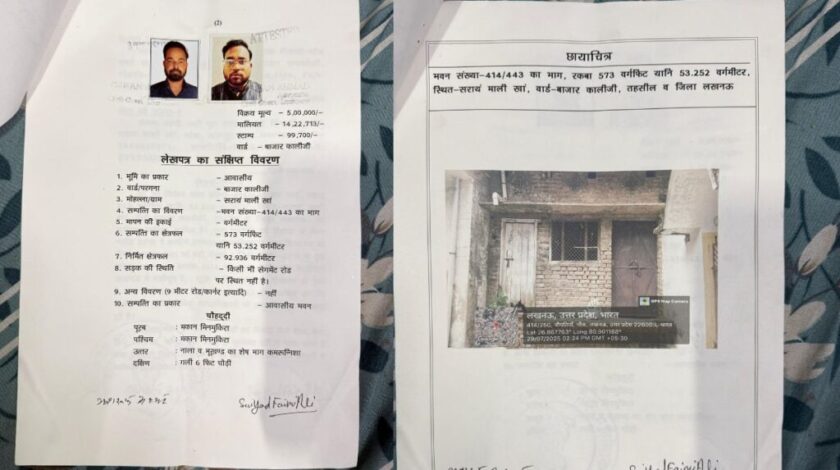 (2)
ATTESTED
विक्रय मूल्य – 5,00,000/-
मालियत – 14,22,713/-
स्टाम्प – 99,700/-
वार्ड – बाजार कालीजी
लेखपत्र का संक्षिप्त विवरण
1. भूमि का प्रकार – आवासीय
2. वार्ड/परगना – बाजार कालीजी
3. मोहल्ला/ग्राम – सरायं माली खां
4. सम्पत्ति का विवरण –भवन संख्या–414/443 का भाग
5. मापन की इकाई – वर्गमीटर
6. सम्पत्ति का क्षेत्रफल – 573 वर्गफिट
यानि 53.252 वर्गमीटर
7. निर्मित क्षेत्रफल – 92.936 वर्गमीटर
8. सड़क की स्थिति – किसी भी सेगमेंट रोड
पर स्थित नहीं है।
9. अन्य विवरण (9 मीटर रोड/कार्नर इत्यादि) – नहीं
10. सम्पत्ति का प्रकार – आवासीय भवन
चौहद्दी
पूरब : मकान मिनमुकिरा
पश्चिम : मकान मिनमुकिरा
उत्तर : नाला व भूखण्ड का शेष भाग कमरून्निशा
दक्षिण : गली 6 फिट चौड़ी
छायाचित्र
भवन संख्या–414/443 का भाग, रकबा 573 वर्गफिट यानि 53.252 वर्गमीटर,
स्थित–सरायं माली खां, वार्ड–बाजार कालीजी, तहसील व जिला लखनऊ
GPS Map Camera
लखनऊ, उत्तर प्रदेश, भारत
लखनऊ, उत्तर प्रदेश 226003, भारत
29/07/2025 02:24 PM GMT +05:30